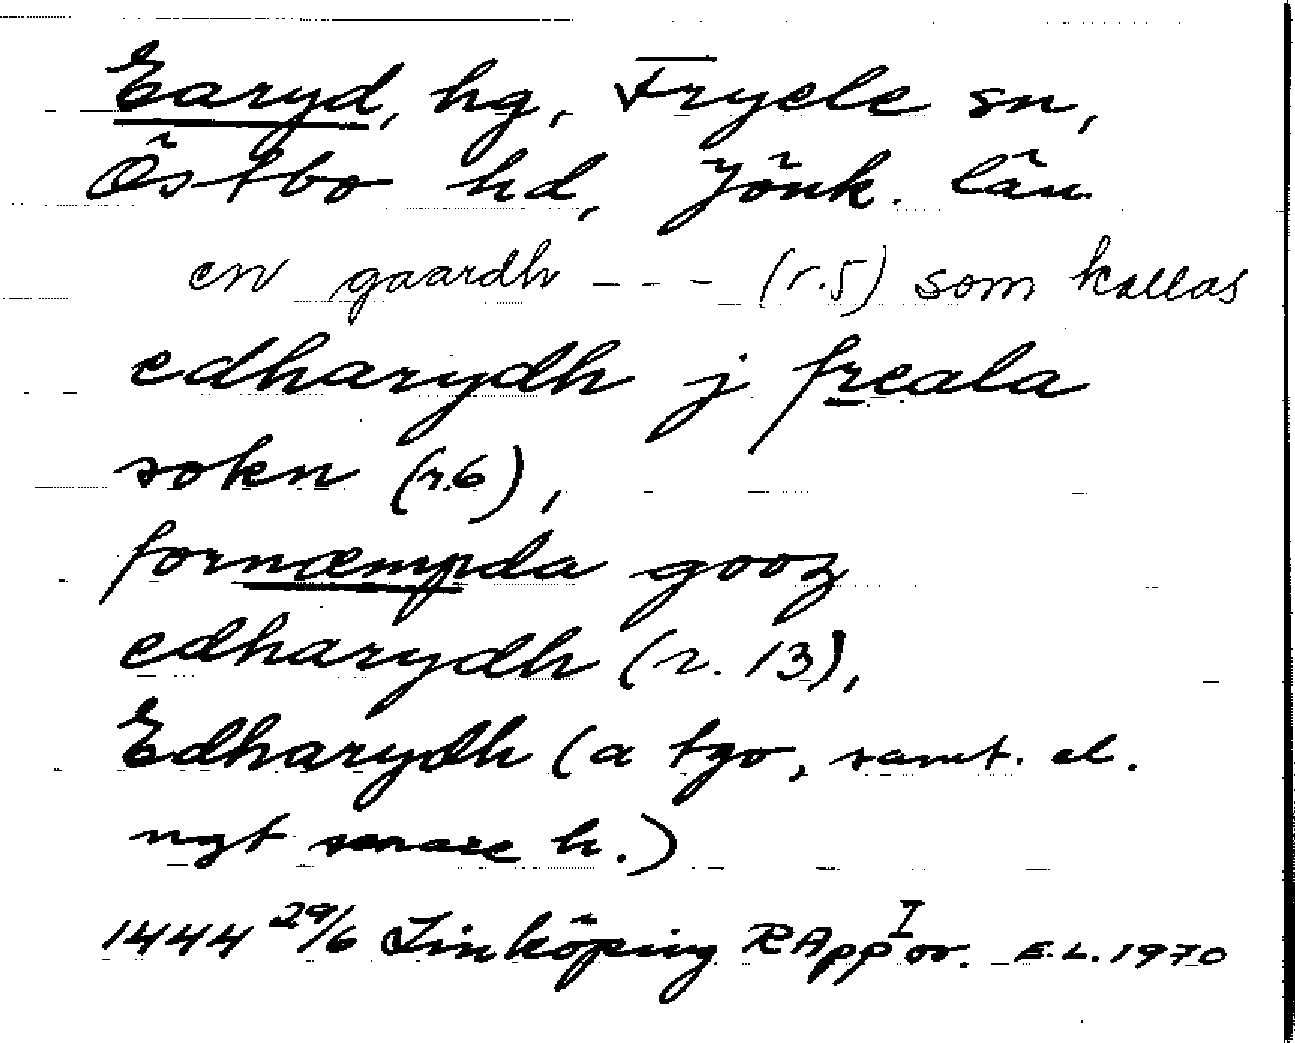 Earyd, hg, Fryele sn,
Östbo hd, Jönk. län
en gaardh - - - (r.5) som kallas
edharydh j freala
sokn (r.6),
fornæmpda gooz
edharydh (r. 13),
Edharydh (a tgo, samt. el.
ngt senare h.)
1444 29/6 Linköping RApp I or. E.L. 1970